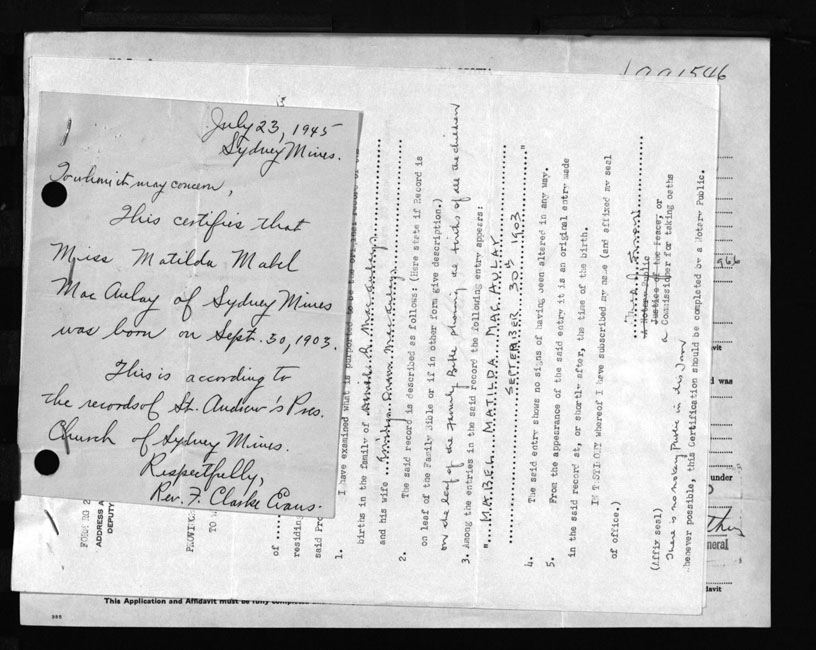 1221546
July 23, 1945
Sydney Mines.
To whom it may concern,
This certifies that
Miss Matilda Mabel
MacAulay of Sydney Mines
was born on Sept. 30, 1903.
This is according to
the records of St. Andrew's Pres.
Church of Sydney Mines.
Respectfully,
Rev. F. Clarke Evans.
FORM NO 2
ADDRESS A
DEPUTY
PROVINC
TO W
of
residin
said Pro
1. I have examined what is purported to be the original record of the
births in the family of
and his wife
2. The said record is described as follows: (Here state if Record is
on leaf of the Family Bible or if in other form give description.)
on the leaf of the Family Bible showing as births of all the children
3. Among the entries in the said record the following entry appears:
"MABEL MATILDA MAC AULAY
SEPTEMBER 30th 1903"
4. The said entry shows no signs of having been altered in any way.
5. From the appearance of the said entry it is an original entry made
in the said record at, or shortly after, the time of the birth.
IN TESTIMONY whereof I have subscribed my name (and affixed my seal
of office.)
A Notary Public
Justice of the Peace, or
a Commissioner for taking oaths
(Affix seal)
There is no notary Public in this town
whenever possible, this Certification should be completed by a Notary Public.
avit
d was
under
neral
davit
This Application and Affidavit must be fully completed